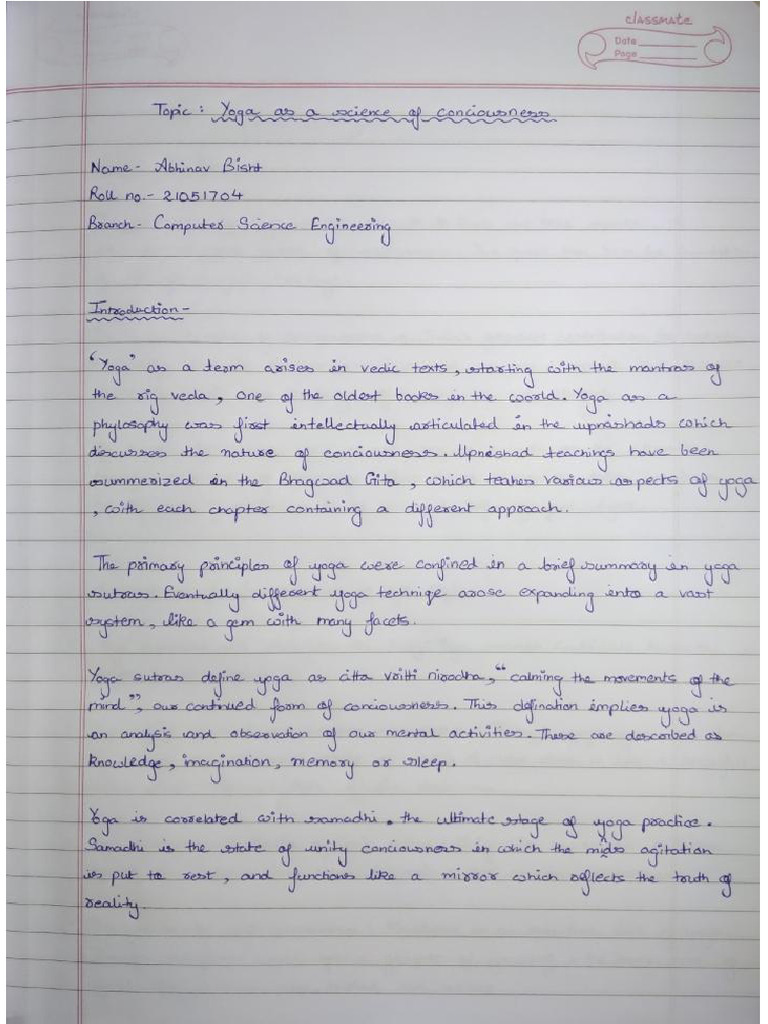 classmate
Date
Page
Topic : Yoga as a science of conciousness
Name - Abhinav Bisht
Roll no. - 21051704
Branch - Computer Science Engineering
Introduction -
"Yoga" as a term arises in vedic texts, starting with the mantras of
the rig veda, one of the oldest books in the world. Yoga as a
phylosophy was first intellectually articulated in the upnishads which
discusses the nature of conciousness. Upnishad teachings have been
summerized in the Bhagwad Gita, which teahes various aspects of yoga
, with each chapter containing a different approach.
The primary principles of yoga were confined in a brief summary in yoga
sutras. Eventually different yoga techniqe arose expanding into a vast
system, like a gem with many facets.
Yoga sutras define yoga as citta vritti nirodha, "calming the movements of the
mind", our continued form of conciousness. This defination implies yoga is
an analysis and observation of our mental activities. These are described as
knowledge, imagination, memory or sleep.
Yoga is correlated with samadhi. the ultimate stage of yoga practice.
Samadhi is the state of unity conciousness in which the agitation
is put to rest, and functions like a mirror which reflects the truth of
reality.